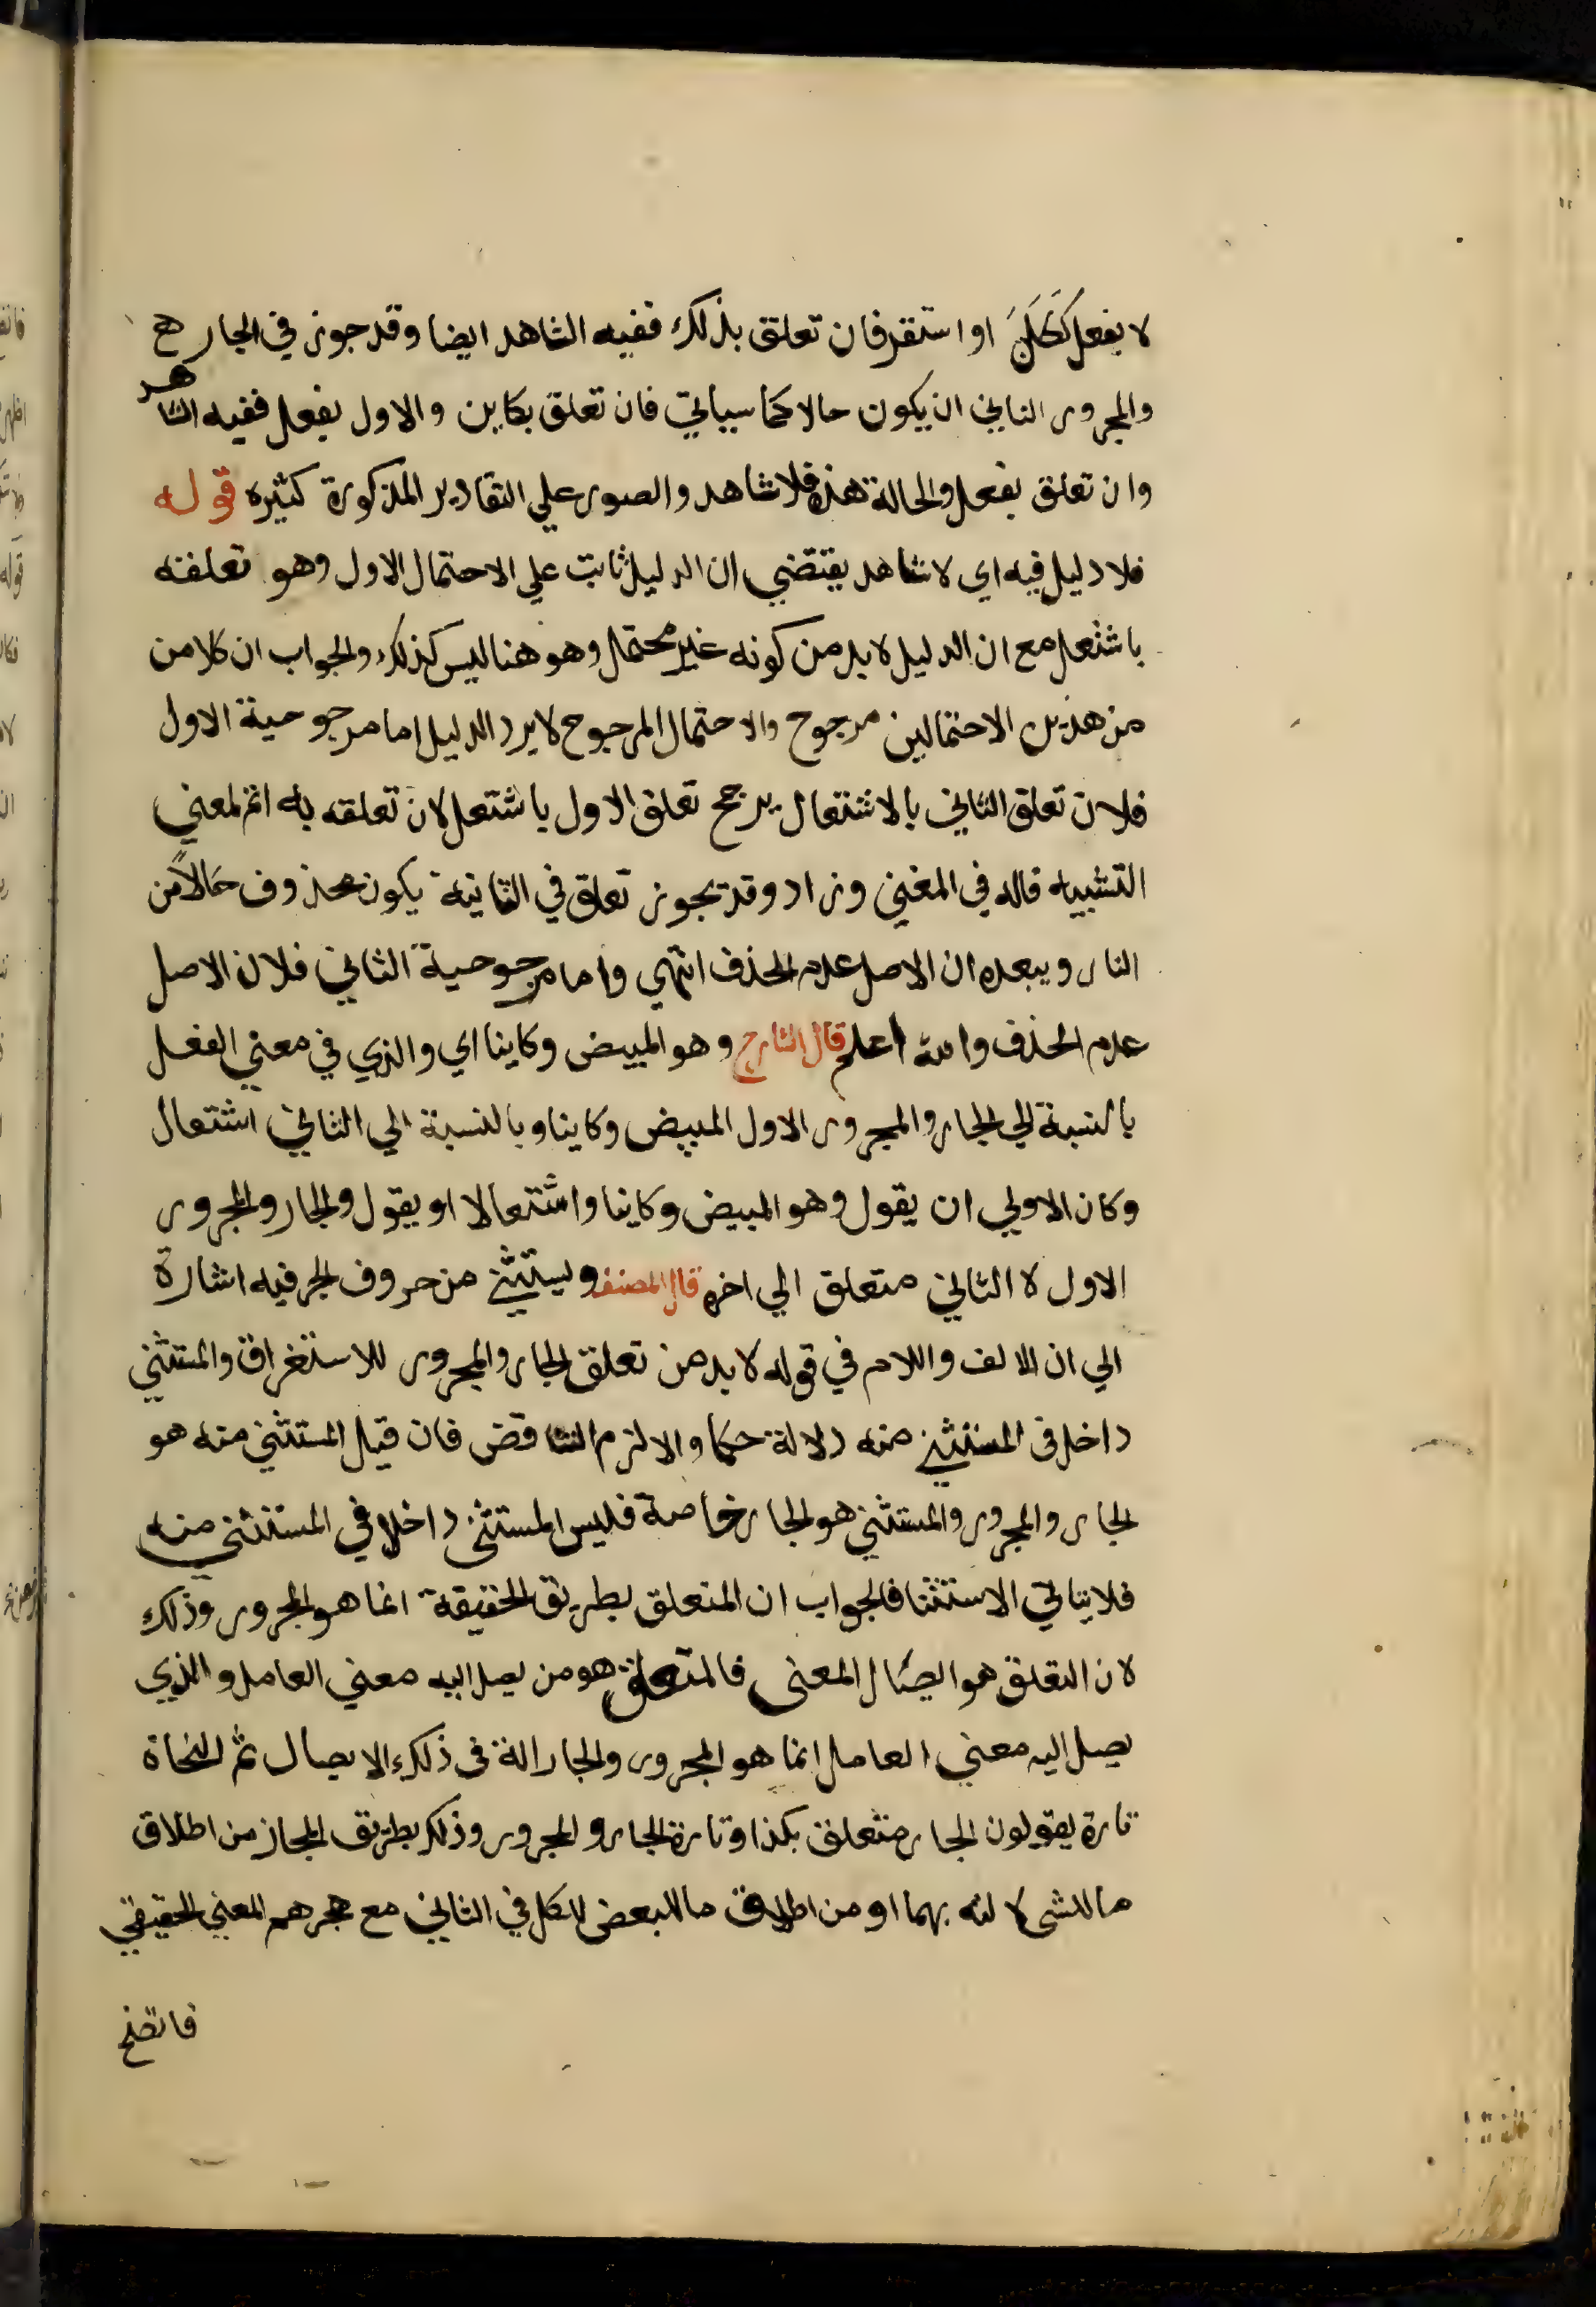 لا بفعل كحصل او استقر فان تعلق بذلك ففيه الشاهد ايضا وقد جوز في الجار ح
والمجرور الثاني ان يكون حالا كما سياتي فان تعلق بكاين والاول بفعل ففيه الشاهد
وان تعلق بفعل والحالة هذه فلا شاهد والصور علي التقادير المذكورة كثيره قوله
فلا دليل فيه اي لا شاهد يقتضي ان الدليل ثابت علي الاحتمال الاول وهو تعلقه
باشتعل مع ان الدليل لا بد من كونه غير محتمل وهو هنا ليس كذلك والجواب ان كلا من
من هذين الاحتمالين مرجوح والاحتمال المرجوح لا يرد الدليل اما مرجوحية الاول
فلان تعلق الثاني بالاشتعال يرجح تعلق الاول باشتعل لان تعلقه به اتم لمعني
التشبيه قاله في المغني وزاد وقد يجوز تعلق في الثانية يكون محذوف حالا من
النار ويبعده ان الاصل عدم الحذف انتهي واما مرجوحية الثاني فلان الاصل
عدم الحذف والله اعلم قال الشارح وهو المبيض وكاينا اي والذي في معني الفعل
بالنسبة الي الجار والمجرور الاول المبيض وكاينا وبالنسبة الي الثاني اشتعال
وكان الاولي ان يقول وهو المبيض وكاينا واشتعالا او يقول والجار والمجرور
الاول لا الثاني متعلق الي اخره قال المصنف ويستثني من حروف الجر فيه اشارة
الي ان الالف واللام في قوله لا بد من تعلق الجار والمجرور للاستغراق والمستثني
داخل في المستثني منه دلالة حكما والا لزم التناقض فان قيل المستثني منه هو
الجار والمجرور والمستثني هو الجار خاصة فليس المستثنى داخلا في المستثني منه
فلا يتاتي الاستثنا فالجواب ان المتعلق بطريق الحقيقة انما هو المجرور وذلك
لان التعلق هو ايصال المعنى فالمتعلق هو من يصل اليه معني العامل والذي
يصل اليه معني العامل انما هو المجرور والجار الة في ذلك الايصال ثم النحاة
تارة يقولون الجار متعلق بكذا وتارة الجار والمجرور وذلك بطريق المجاز من اطلاق
ما للشي لالته بهما او من اطلاق ما للبعض للكل في الثاني مع هجرهم المعني الحقيقي
فاتضح